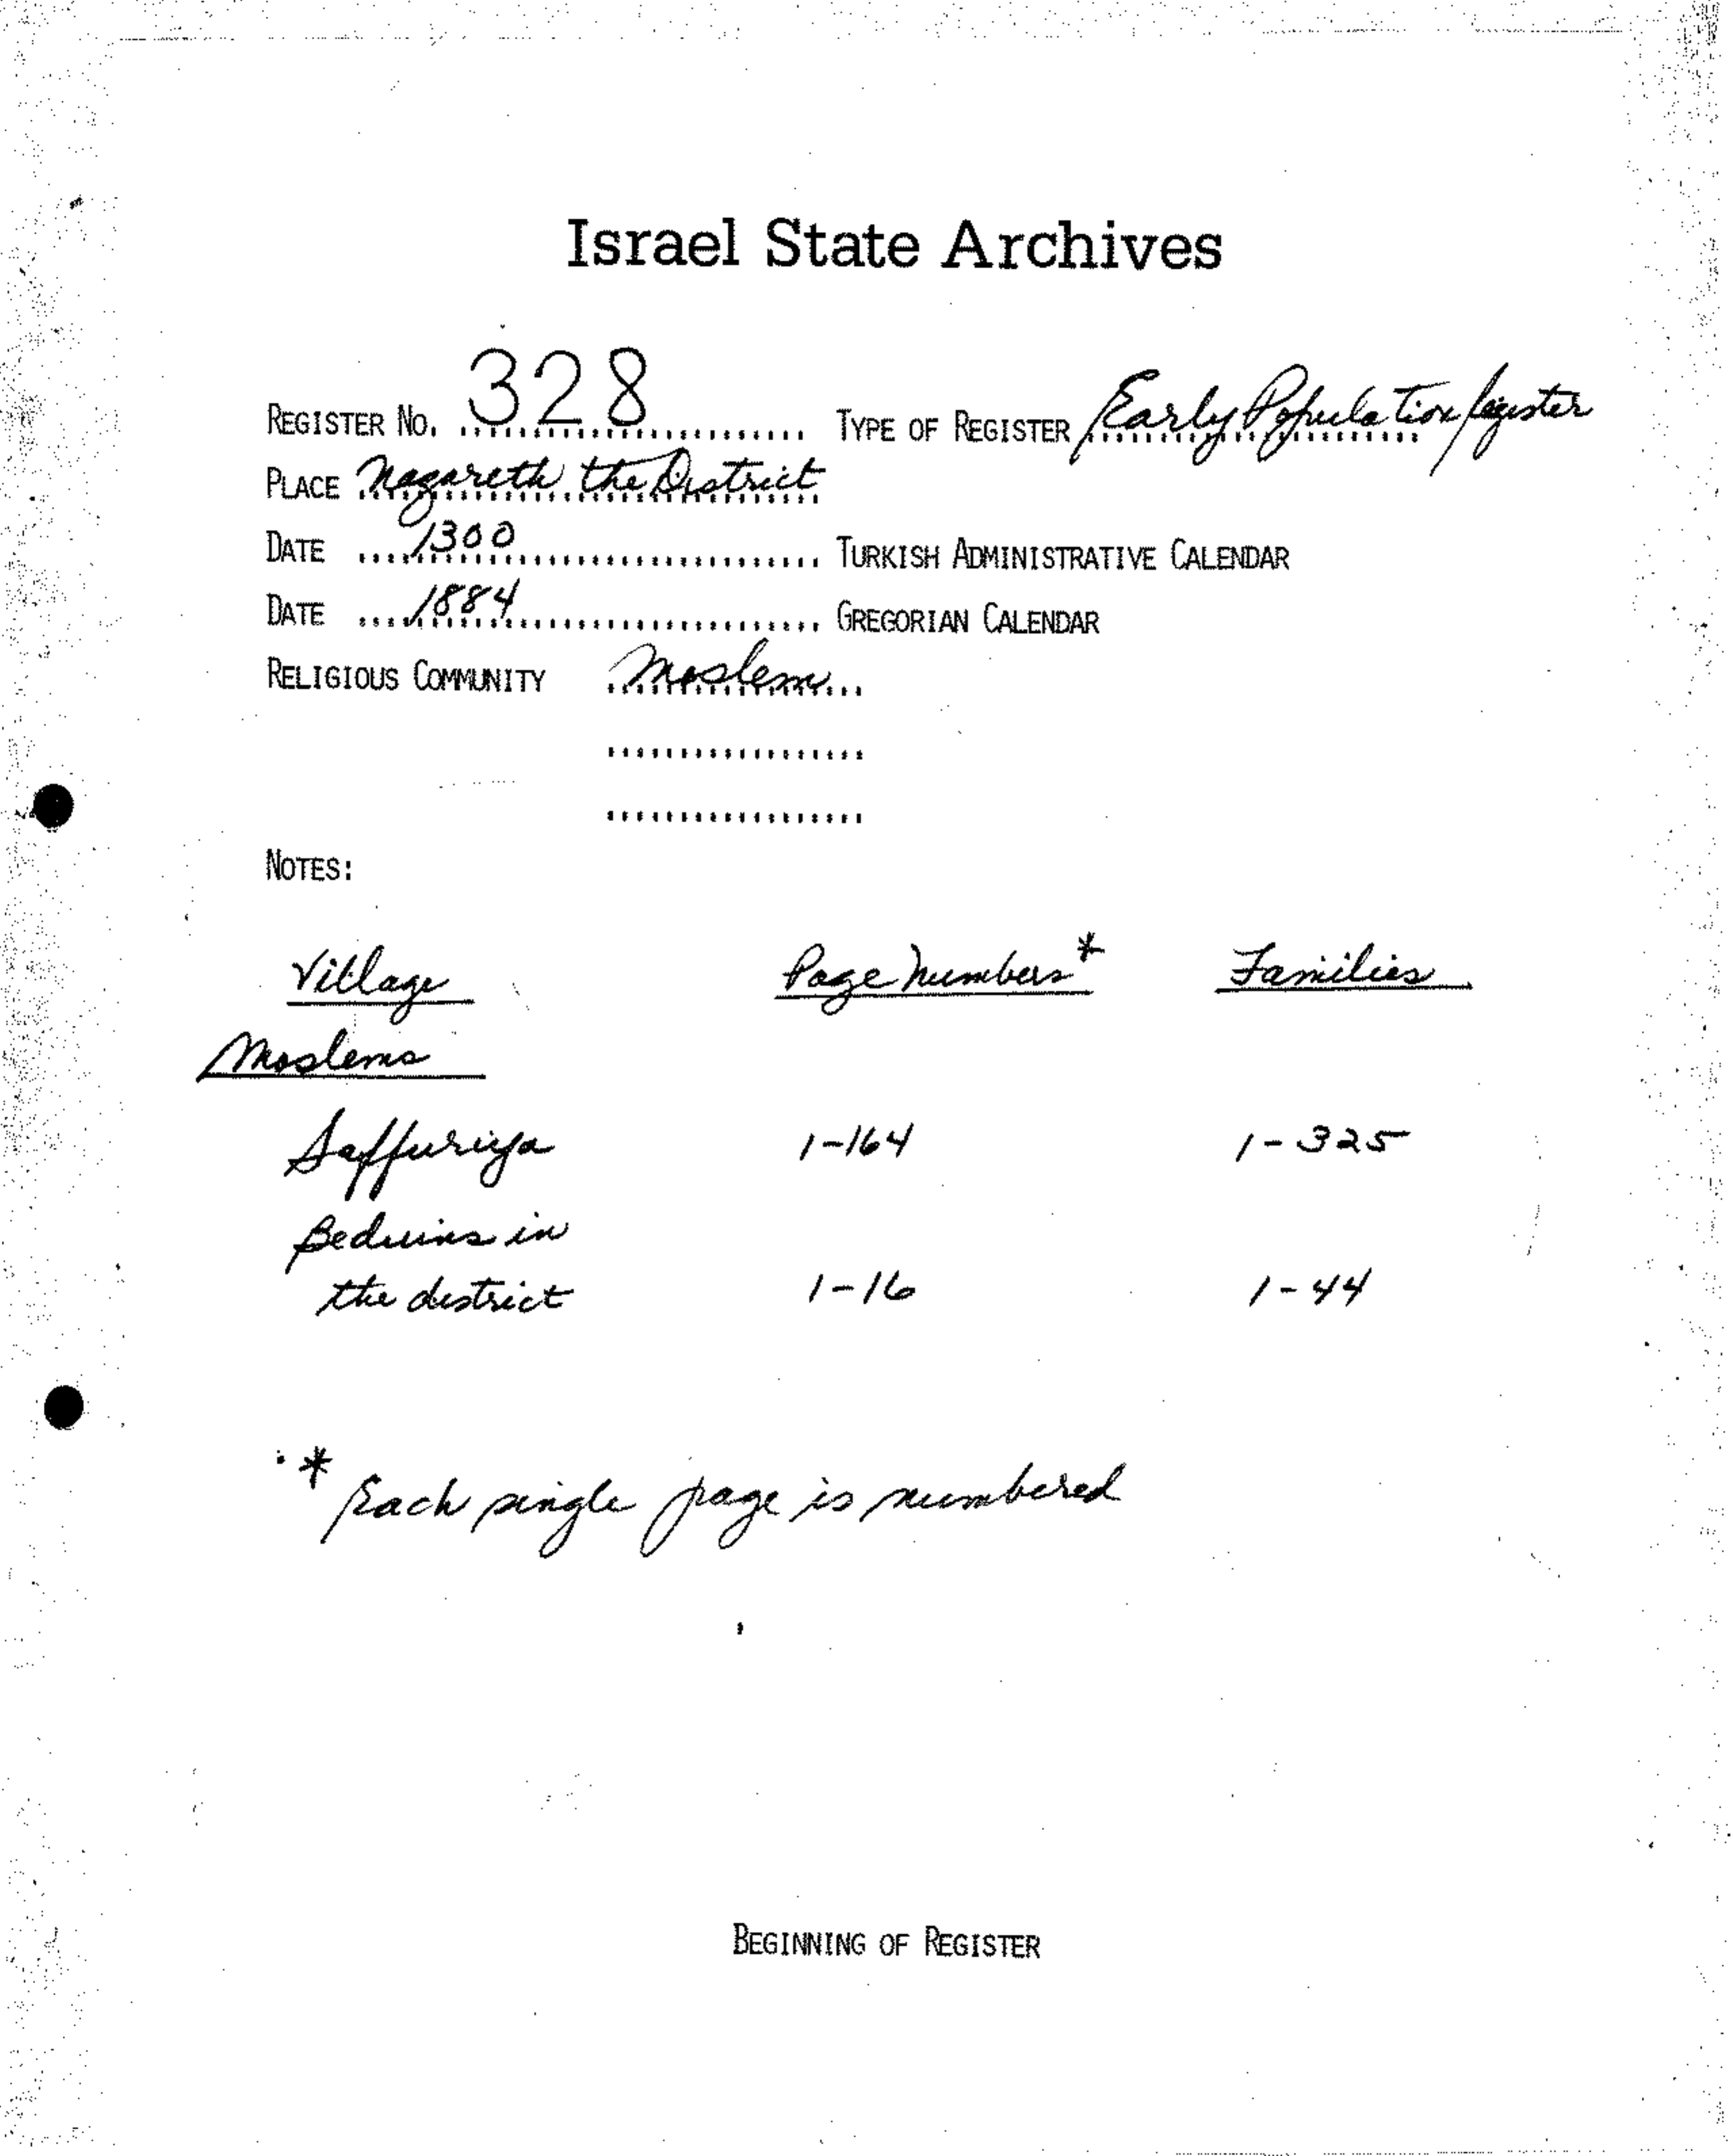 Israel State Archives
REGISTER NO. 328 TYPE OF REGISTER Early Population Register
PLACE Nazareth the District
DATE 1300 TURKISH ADMINISTRATIVE CALENDAR
DATE 1884 GREGORIAN CALENDAR
RELIGIOUS COMMUNITY Moslem
NOTES:
Village Page Numbers* Families
Moslems
Saffuriya 1-164 1-325
Beduins in
the district 1-16 1-44
* Each single page is numbered
BEGINNING OF REGISTER